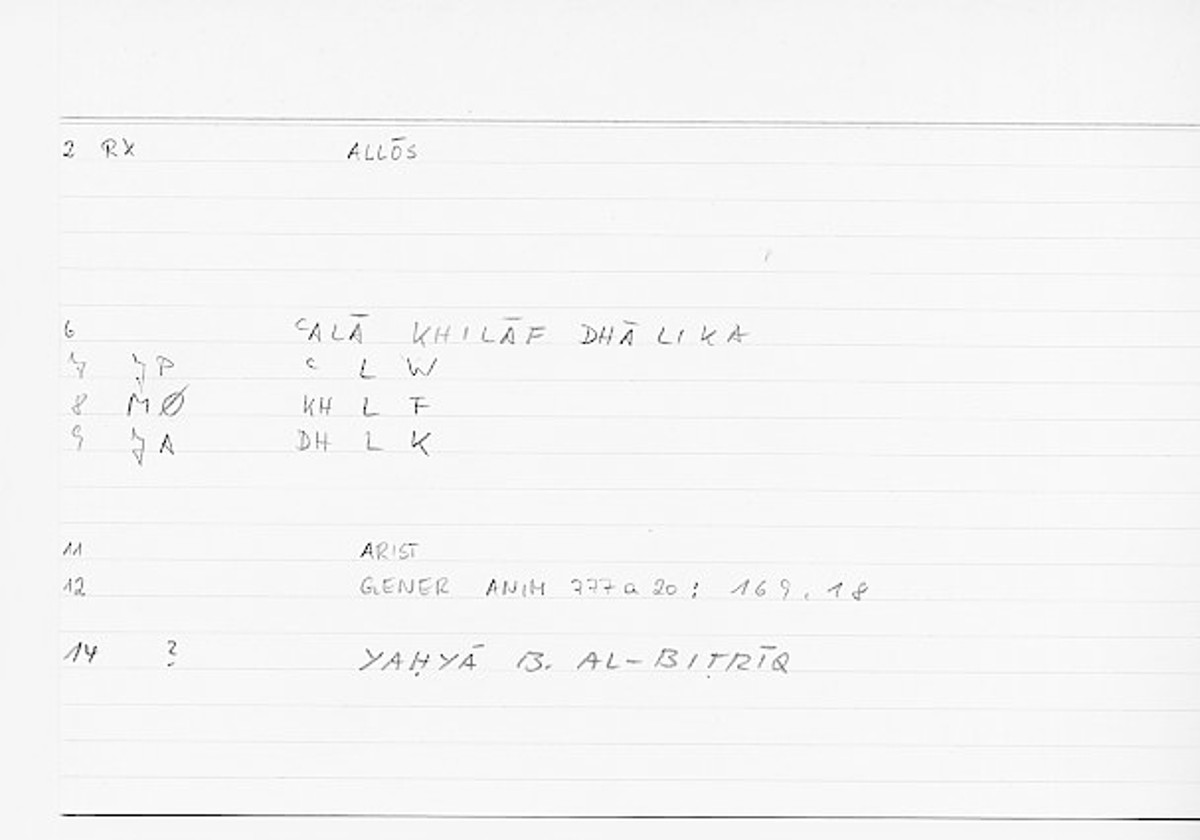 2 RX ALLŌS
6 ʿALĀ KHILĀF DHĀLIKA
7 JP ʿ L W
8 MØ KH L F
9 JA DH L K
11 ARIST
12 GENER ANIM 777a20; 169,18
14 ? YAḤYĀ B. AL-BIṬRĪQ